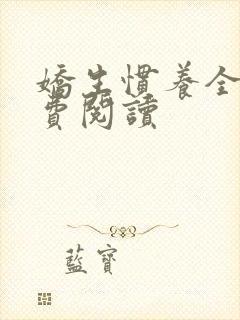 嬌生慣養全
費閱讀
藍寶